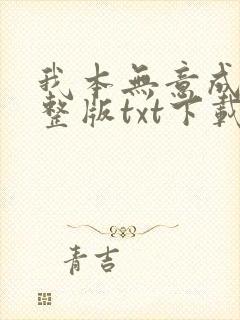 我本無意成
整版txt下載
青吉